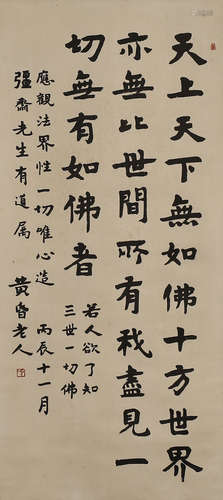 天上天下無如佛十方世界
亦無比世間所有我盡見一
切無有如佛者
若人欲了知
三世一切佛
應觀法界性一切唯心造 丙辰十一月
彊齋先生有道属 黃昏老人